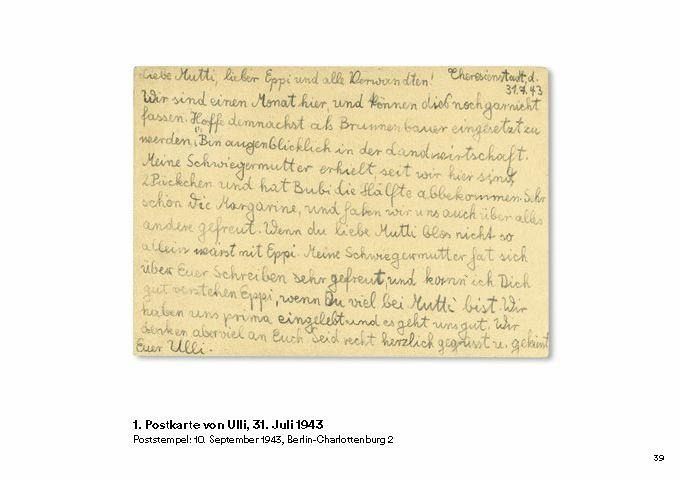 Liebe Mutti, lieber Eppi und alle Verwandten! Theresienstadt, d.
31.7.43
Wir sind einen Monat hier, und können dies noch garnicht
fassen. Hoffe demnächst als Brunnenbauer eingesetzt zu
werden, Bin augenblicklich in der Landwirtschaft.
Meine Schwiegermutter erhielt, seit wir hier sind,
2 Päckchen und hat Bubi die Hälfte abbekommen. Sehr
schön die Margarine, und haben wir uns auch über alles
andere gefreut. Wenn du liebe Mutti bloss nicht so
allein wärst mit Eppi. Meine Schwiegermutter hat sich
über Euer Schreiben sehr gefreut, und kann ich Dich
gut verstehen Eppi, wenn Du viel bei Mutti bist. Wir
haben uns prima eingelebt und es geht uns gut. Wir
denken aber viel an Euch. Seid recht herzlich gegrüsst u. geküsst
Euer Ulli.
1. Postkarte von Ulli, 31. Juli 1943
Poststempel: 10. September 1943, Berlin-Charlottenburg 2
39